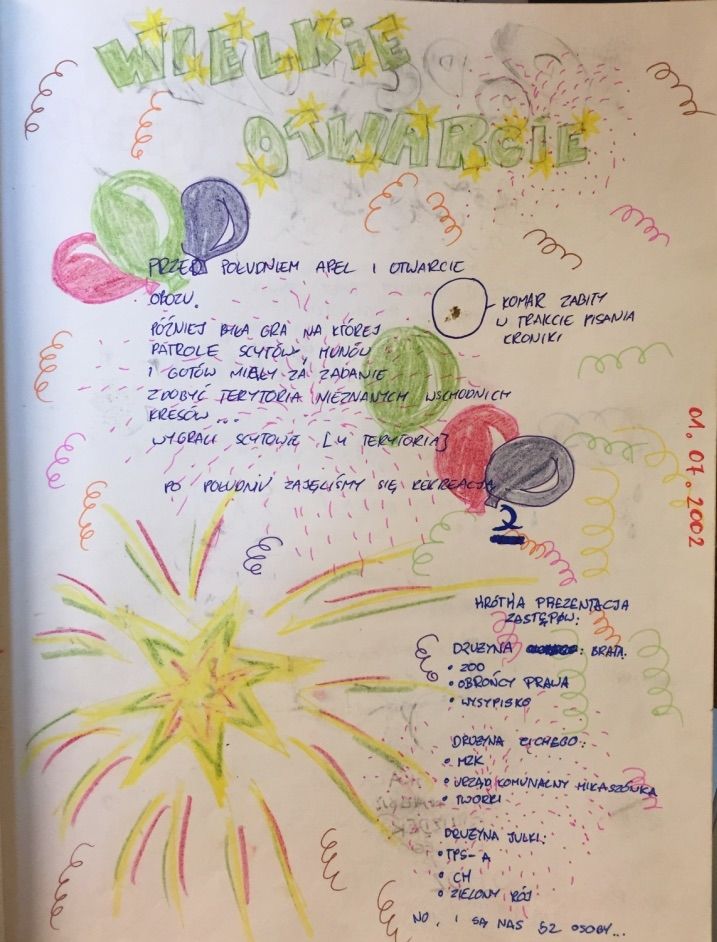 WIELKIE
OTWARCIE
PRZED POŁUDNIEM APEL I OTWARCIE
OBOZU.
KOMAR ZABITY
W TRAKCIE PISANIA
KRONIKI
PÓŹNIEJ BYŁA GRA NA KTÓREJ
PATROLE SCYTÓW, HUNÓW
I GOTÓW MIAŁY ZA ZADANIE
ZDOBYĆ TERYTORIA NIEZNANYCH WSCHODNICH
KRESÓW...
WYGRALI SCYTOWIE [4 TERYTORIA]
PO POŁUDNIU ZAJĘLIŚMY SIĘ REKREACJĄ
2
01.07.2002
KRÓTKA PREZENTACJA
ZASTĘPÓW:
DRUŻYNA : BRATA:
• ZOO
• OBROŃCY PRAWA
• WYSYPISKO
DRUŻYNA CICHEGO:
• MZK
• URZĄD KOMUNALNY MIKASZÓWKA
• TWORKI
DRUŻYNA JULKI:
• TPS-A
• CH
• ZIELONY RÓJ
NO, I SĄ NAS 52 OSOBY...